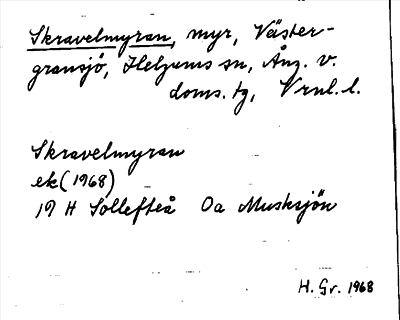 Skravelmyran, myr, Väster-
gransjö, Helgums sn, Ång. v.
doms. tg, Vrnl. l.
Skravelmyran
ek (1968)
19 H Sollefteå Oa Musksjön
H. Gr. 1968